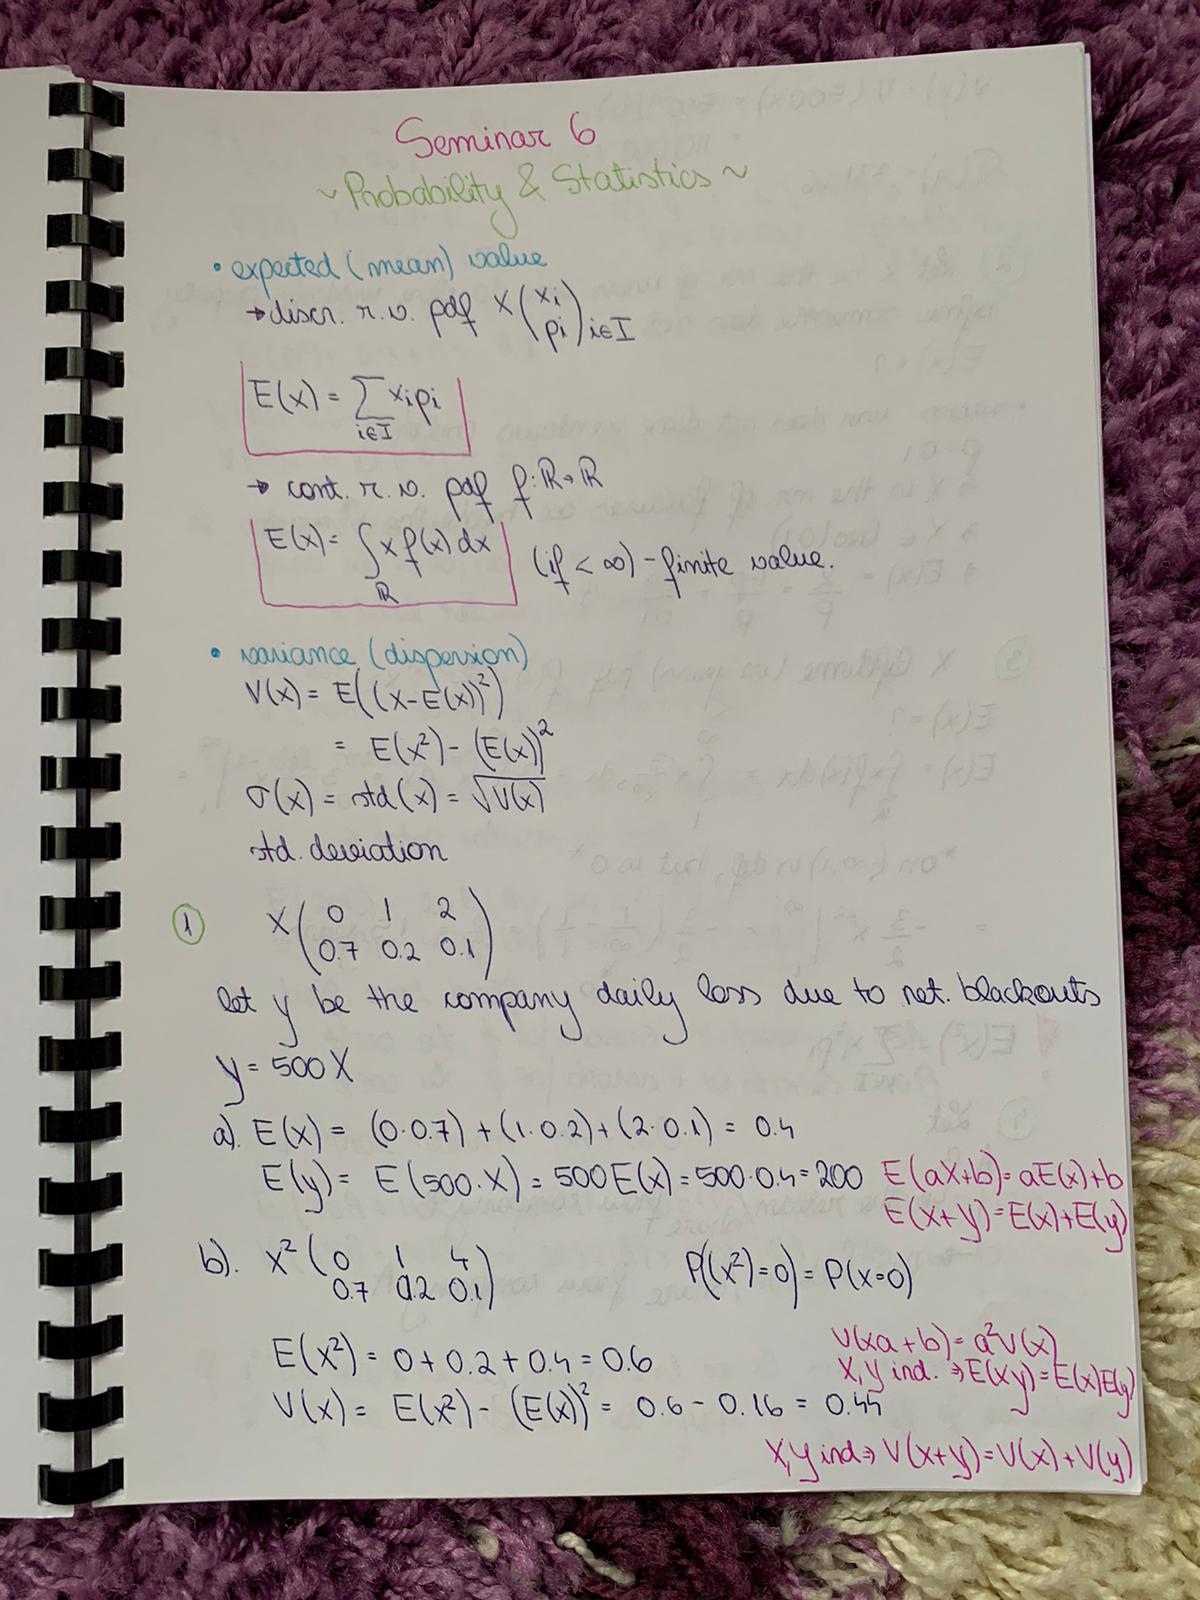 Seminar 6
~ Probability & Statistics ~
• expected (mean) value
→ discr. r.v. pdf X (xi pi) i∈I
E(x) = ∑ xipi
i∈I
→ cont. r.v. pdf f: ℝ→ℝ
E(x) = ∫ x f(x) dx (if < ∞) - finite value.
ℝ
• variance (dispersion)
V(x) = E((X-E(x))²)
= E(x²) - (E(x))²
σ(x) = std(x) = √V(x)
std. deviation
① X ( 0 1 2
0.7 0.2 0.1 )
let y be the company daily loss due to net. blackouts
y = 500X
a). E(x) = (0·0.7) + (1·0.2) + (2·0.1) = 0.4
E(y) = E(500·X) = 500E(x) = 500·0.4 = 200 E(aX+b) = aE(x)+b
E(x+y) = E(x)+E(y)
b). X² ( 0 1 4 P((x²)=0) = P(x=0)
0.7 0.2 0.1 )
V(xa+b) = a²V(x)
E(x²) = 0 + 0.2 + 0.4 = 0.6 X,Y ind. ⇒ E(Xy) = E(x)E(y)
V(x) = E(x²) - (E(x))² = 0.6 - 0.16 = 0.44
X,y ind ⇒ V(x+y) = V(x) + V(y)